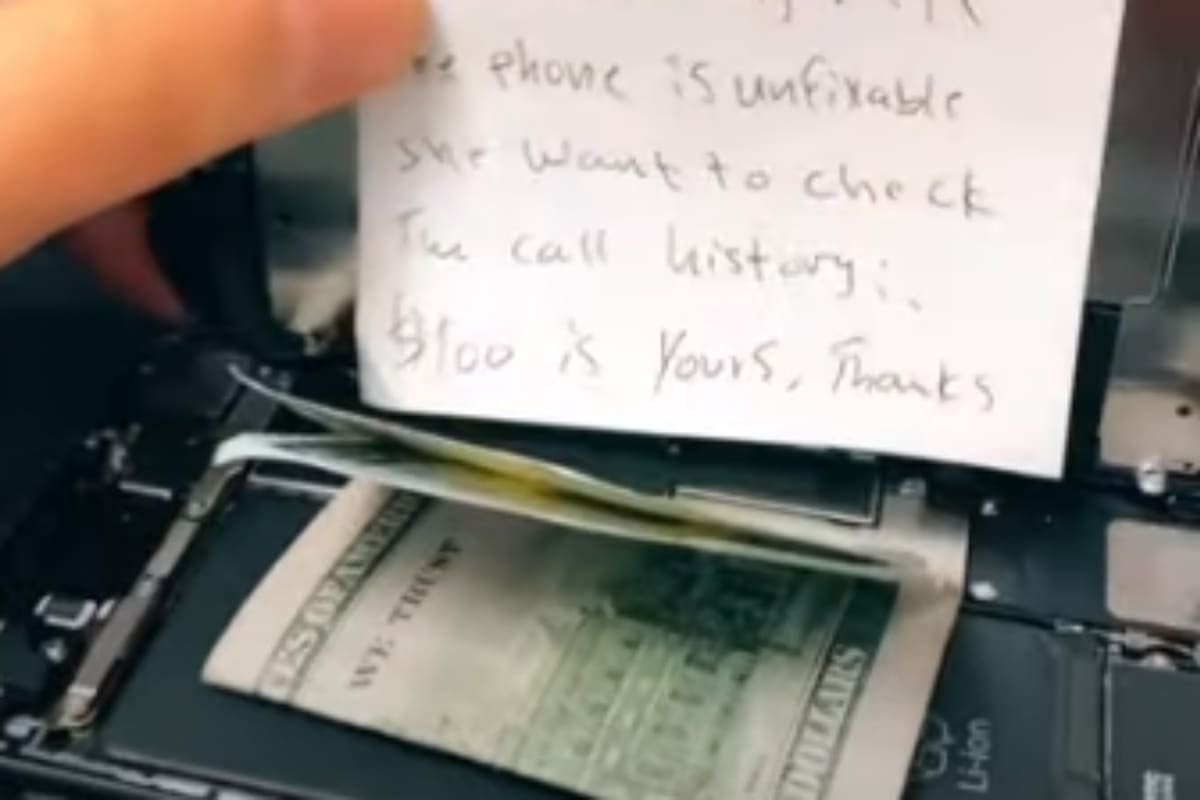 phone is unfixable
she want to check
The call history:.
$100 is yours, Thanks
WE TRUST
DOLLARS
Li-ion